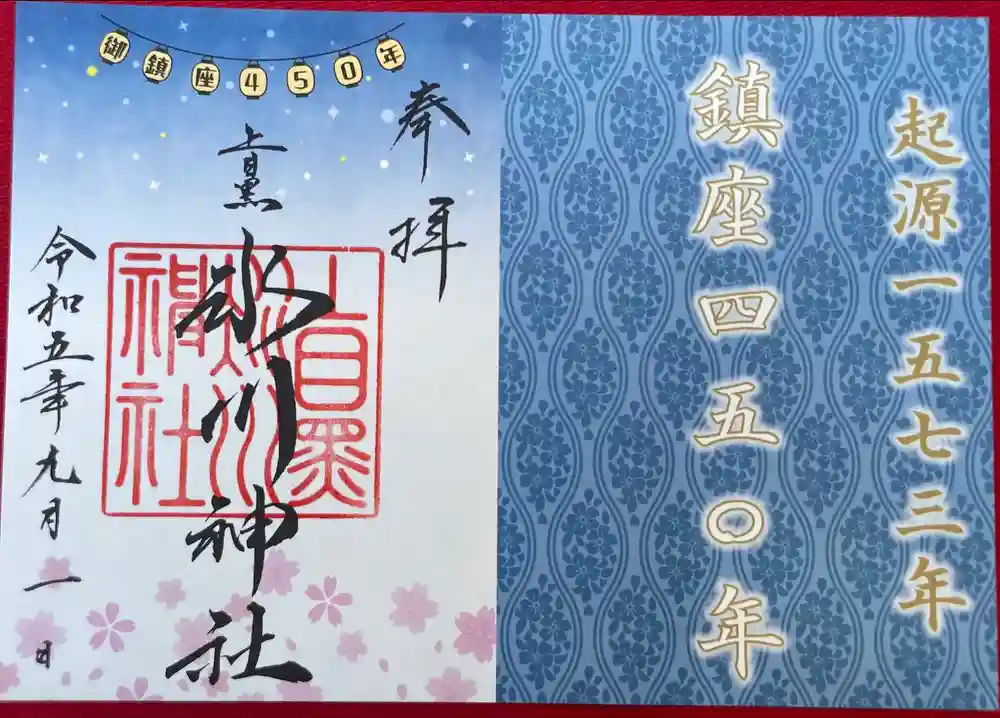 起源一五七三年
鎮座四五〇年
御鎮座450年
奉拝
上目黒
氷川神社
上目黒氷川神社
令和五年九月一日